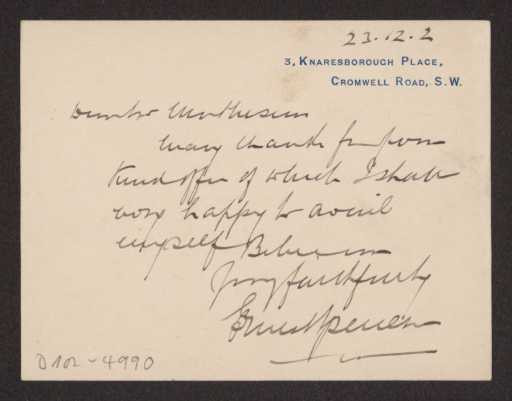 23.12.2
3, KNARESBOROUGH PLACE,
CROMWELL ROAD, S.W.
Dear Mr Mathieson
Many thanks for your
kind offer of which I shall
very happy to avail
myself Believe me
Yours faithfully
Ernest Spencer
D 102-4990